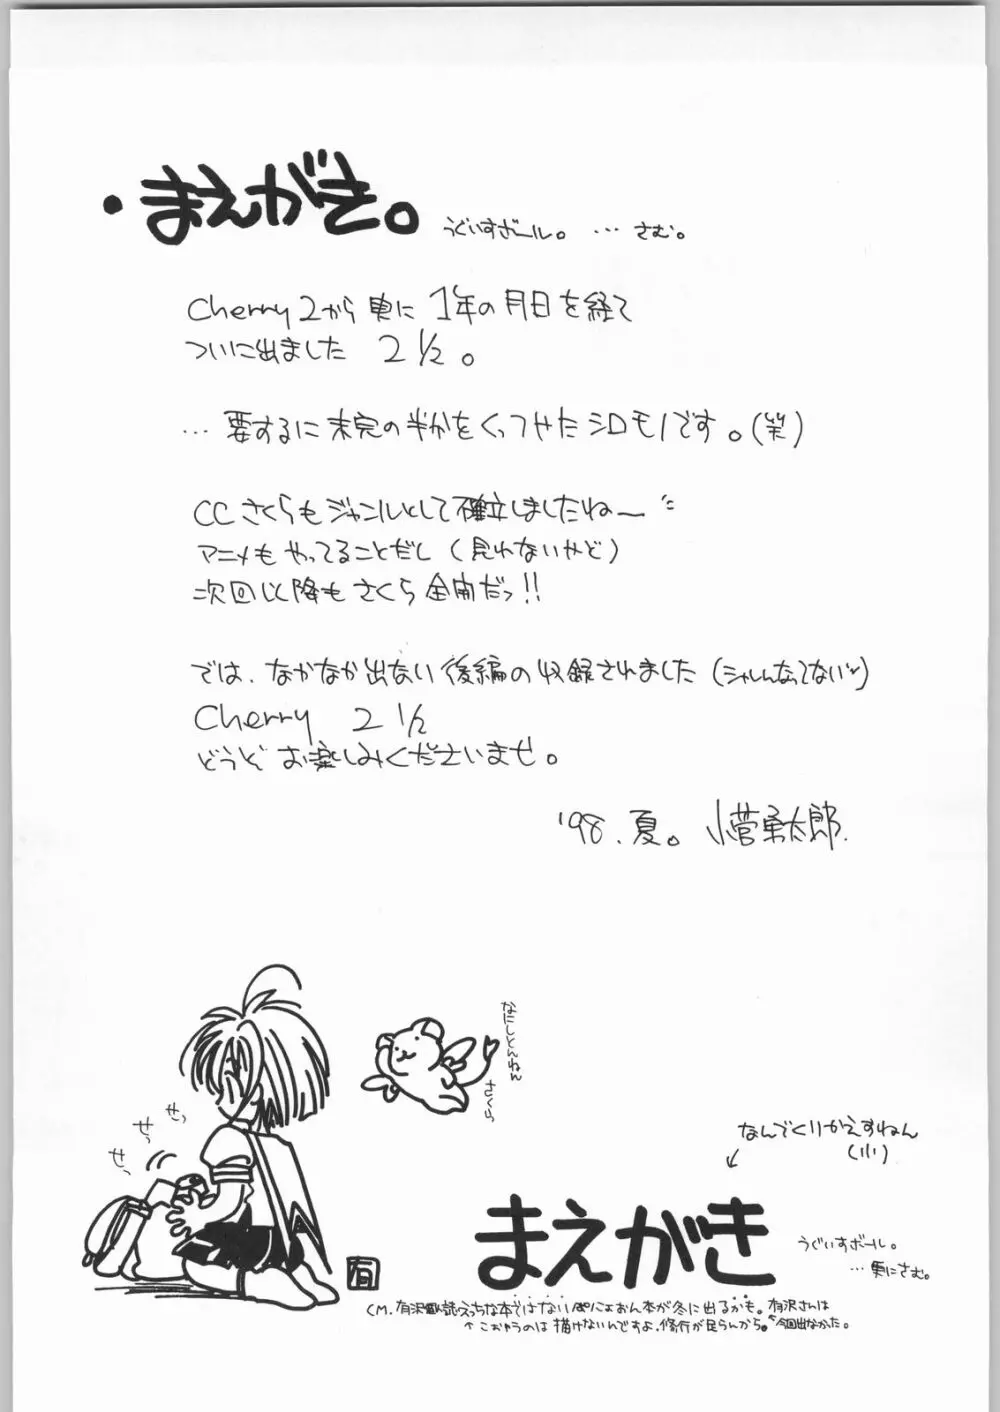 ・まえがき。
うぐいすボール。 … さむ。
Cherry 2から更に 1年の月日を経て
ついに出ました 2 1/2。
… 要するに未完の半かをくっつけたシロモノです。(笑)
CCさくらもジャンルとして確立しましたね〜
アニメもやってることだし (見れないけど)
次回以降もさくら全開だっ!!
では、なかなか出ない後編の収録されました (シャレんなってない)
Cherry 2 1/2
どうぞ お楽しみくださいませ。
'98.夏。 小菅勇太郎.
なにしとんねん
さくら
せっ
せっ
せっ
なんでくりかえすねん
(小)
↙
まえがき
うぐいすボール。
… 更にさむ。
有
CM. 有沢 えっちな本ではない におん本が冬に出るかも。 有沢さんは
↑こおゆうのは 描けないんですよ、修行が足らんから。 今回出なかった。